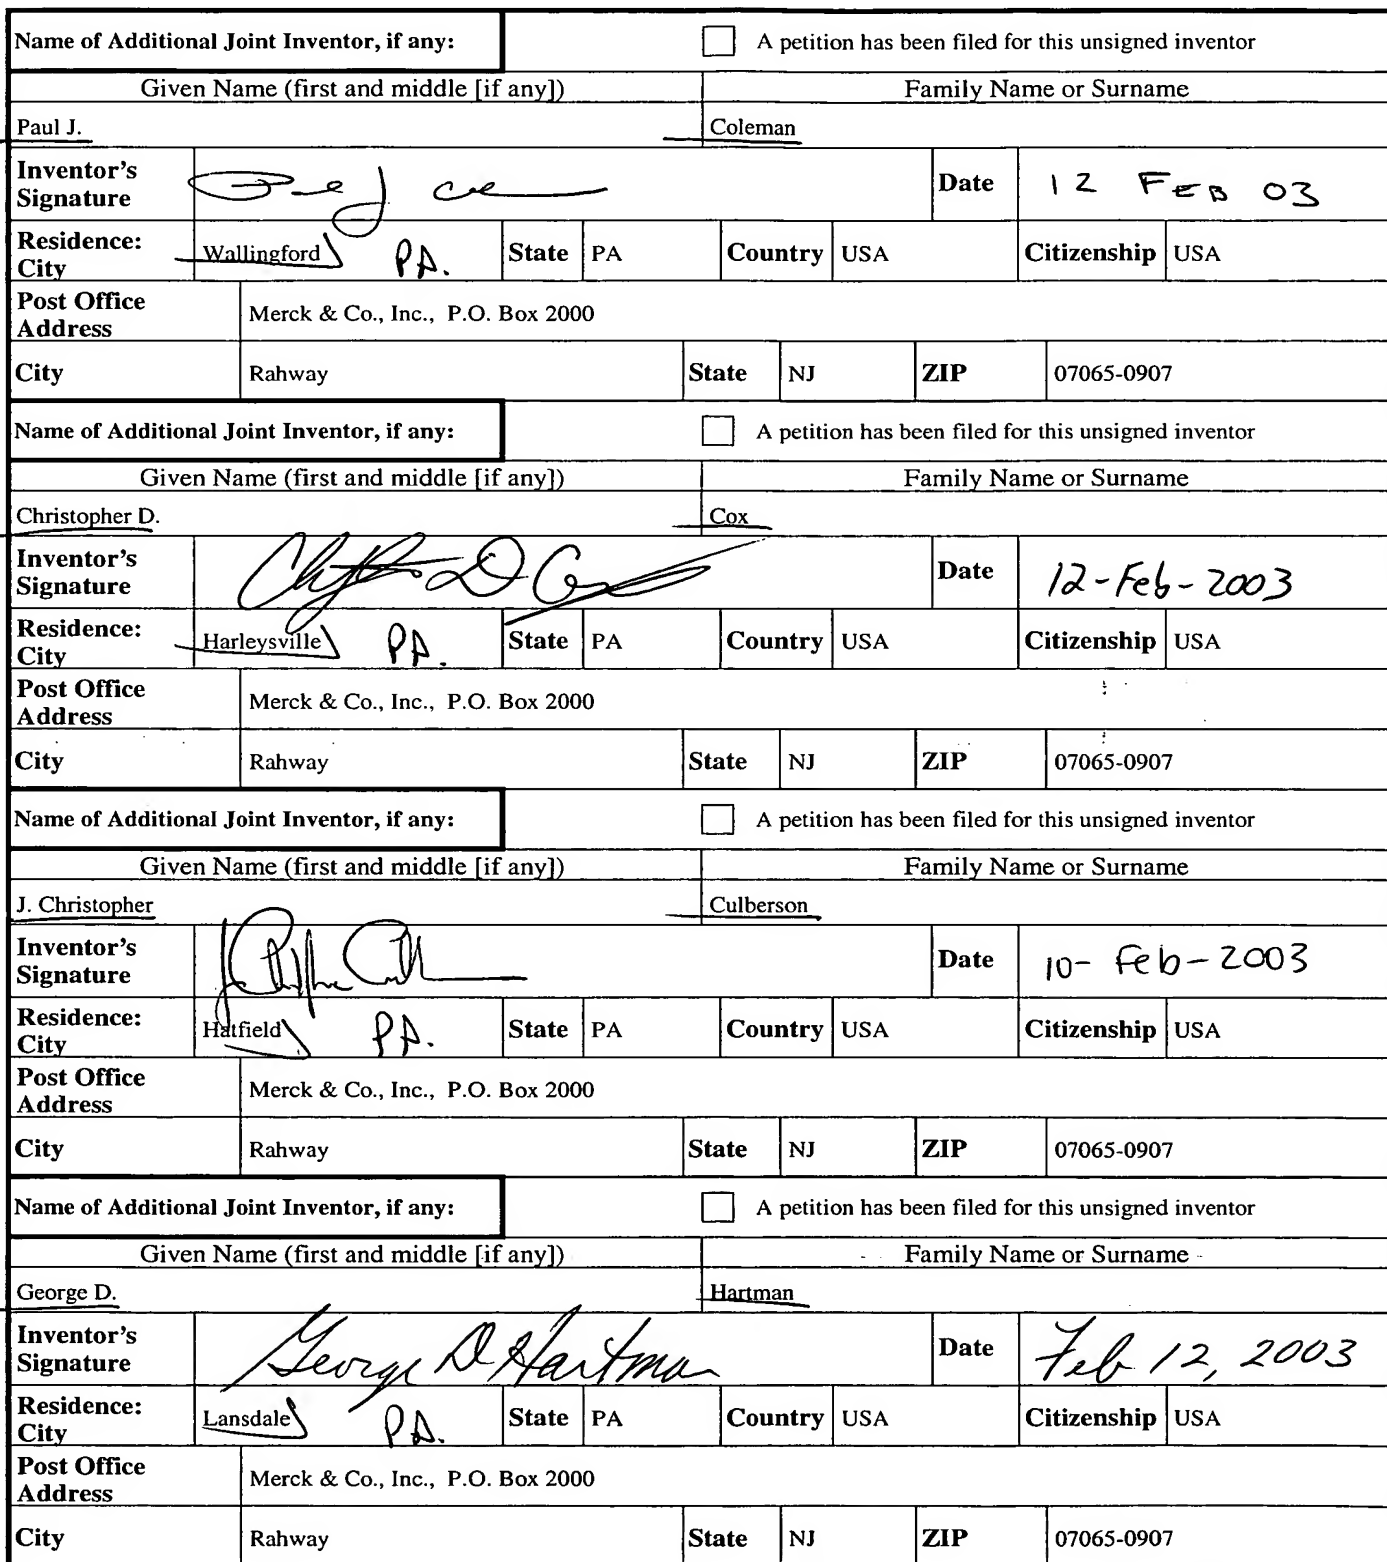 Name of Additional Joint Inventor, if any: A petition has been filed for this unsigned inventor
Given Name (first and middle [if any]) Family Name or Surname
Paul J. Coleman
Inventor's Signature Date 12 FEB 03
Residence: City Wallingford PA. State PA Country USA Citizenship USA
Post Office Address Merck & Co., Inc., P.O. Box 2000
City Rahway State NJ ZIP 07065-0907
Name of Additional Joint Inventor, if any: A petition has been filed for this unsigned inventor
Given Name (first and middle [if any]) Family Name or Surname
Christopher D. Cox
Inventor's Signature Date 12-Feb-2003
Residence: City Harleysville PA. State PA Country USA Citizenship USA
Post Office Address Merck & Co., Inc., P.O. Box 2000
City Rahway State NJ ZIP 07065-0907
Name of Additional Joint Inventor, if any: A petition has been filed for this unsigned inventor
Given Name (first and middle [if any]) Family Name or Surname
J. Christopher Culberson
Inventor's Signature Date 10-Feb-2003
Residence: City Hatfield PA. State PA Country USA Citizenship USA
Post Office Address Merck & Co., Inc., P.O. Box 2000
City Rahway State NJ ZIP 07065-0907
Name of Additional Joint Inventor, if any: A petition has been filed for this unsigned inventor
Given Name (first and middle [if any]) Family Name or Surname
George D. Hartman
Inventor's Signature George D Hartman Date Feb 12, 2003
Residence: City Lansdale PA. State PA Country USA Citizenship USA
Post Office Address Merck & Co., Inc., P.O. Box 2000
City Rahway State NJ ZIP 07065-0907